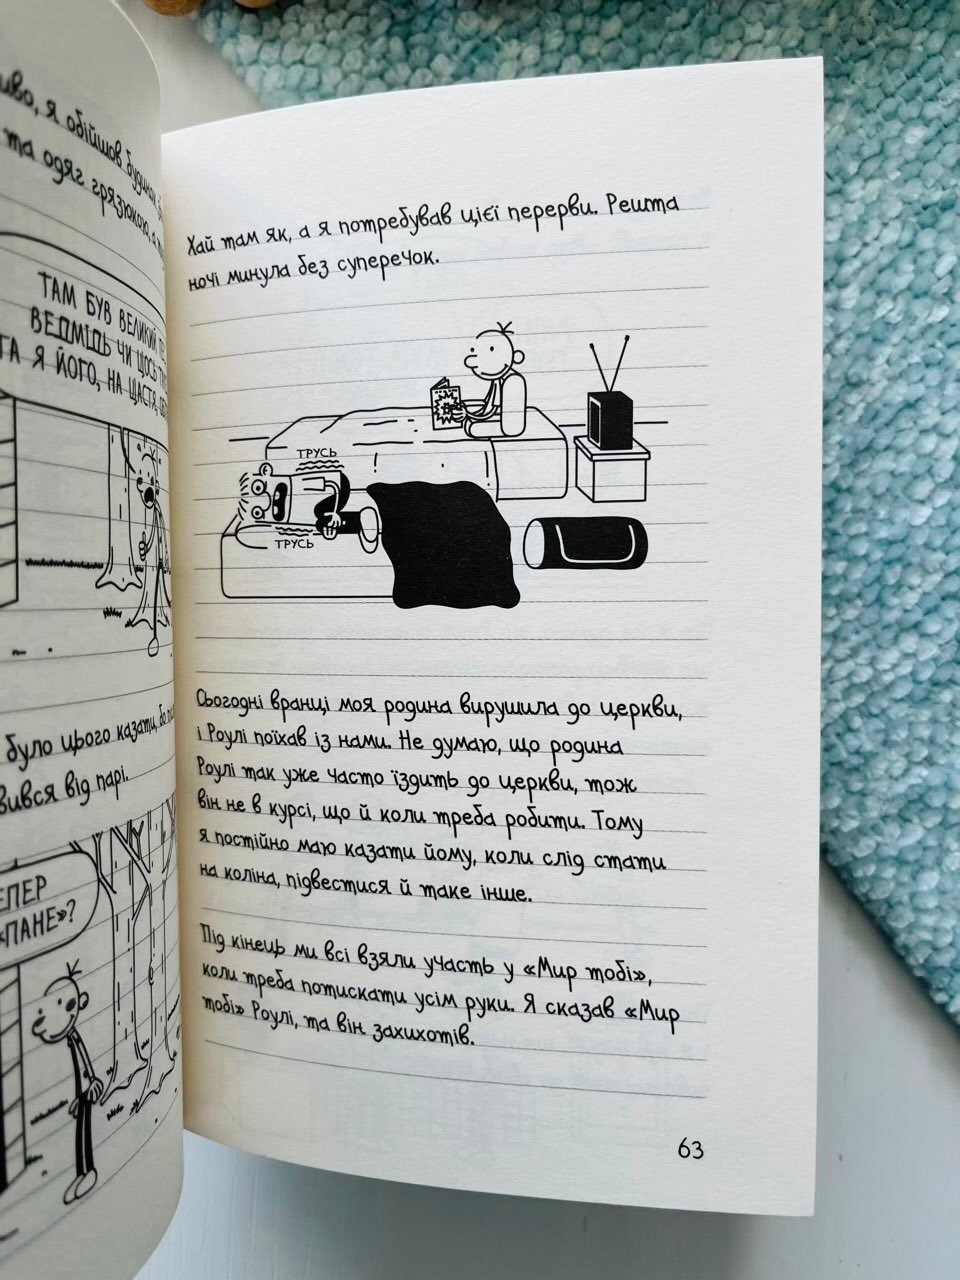 я обійшов
та одяг грязюкою, а
ТАМ БУВ ВЕЛИКИЙ
ВЕДМІДЬ ЧИ ЩОСЬ
Я ЙОГО, НА ЩАСТЯ,
було цього казати, бо
від парі.
«ПАНЕ»?
Хай там як, а я потребував цієї перерви. Решта
ночі минула без суперечок.
ТРУСЬ
ТРУСЬ
Сьогодні вранці моя родина вирушила до церкви,
і Роулі поїхав із нами. Не думаю, що родина
Роулі так уже часто їздить до церкви, тож
він не в курсі, що й коли треба робити. Тому
я постійно маю казати йому, коли слід стати
на коліна, підвестися й таке інше.
Під кінець ми всі взяли участь у «Мир тобі»,
коли треба потискати усім руки. Я сказав «Мир
тобі» Роулі, та він захихотів.
63